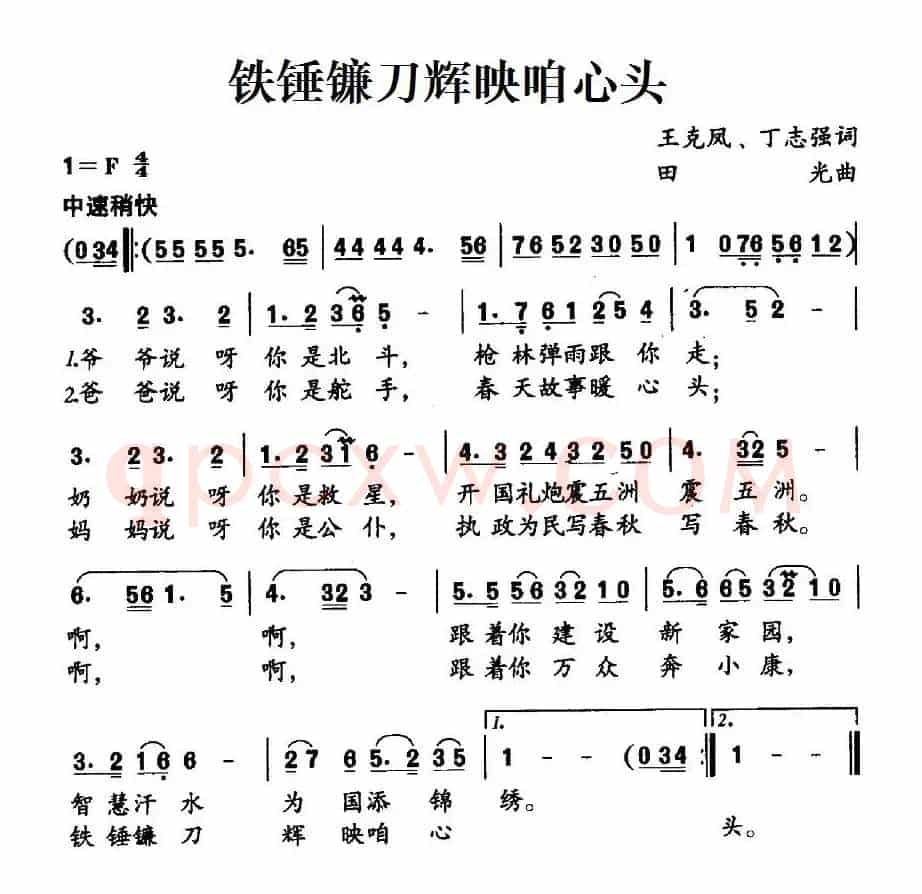 铁锤镰刀辉映咱心头
王克凤、丁志强词
1=F 4/4
田 光曲
中速稍快
(034‖:(55555. 65|44444. 56|76523050|1 0765612)|
3. 23. 2|1. 2365 -|1. 761254|3. 52 -|
1.爷 爷说 呀 你 是北 斗, 枪 林弹雨跟 你 走;
2.爸 爸说 呀 你 是舵 手, 春 天故事暖 心 头;
3. 23. 2|1. 2316 -|4. 324323250|4. 325 -|
奶 奶说 呀 你 是救 星, 开 国礼炮震五洲 震 五 洲。
妈 妈说 呀 你 是公 仆, 执 政为民写春秋 写 春 秋。
qpcxw.com
6. 561. 5|4. 323 -|5. 5563210|5. 66532210|
啊, 啊, 跟 着你 建 设 新 家 园,
啊, 啊, 跟 着你 万 众 奔 小 康,
1. 2.
3. 2166 -|2765. 235|1 - - (034:‖1 - -‖
智 慧汗 水 为 国添 锦 绣。
铁 锤镰 刀 辉 映咱 心 头。